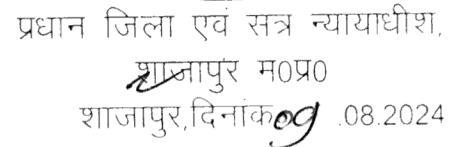 प्रधान जिला एवं सत्र न्यायाधीश,
शाजापुर म0प्र0
शाजापुर,दिनांक 09 .08.2024